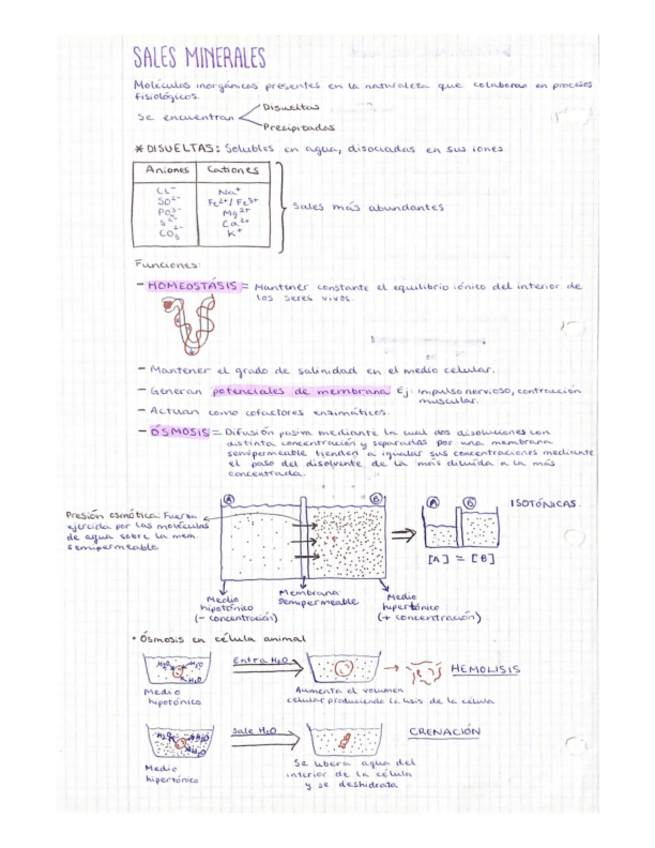 SALES MINERALES
Moléculas inorgánicas presentes en la naturaleza que colaboran en procesos
fisiológicos.
Se encuentran
Disueltas
Precipitadas
* DISUELTAS: Solubles en agua, disociadas en sus iones
Aniones Cationes
CL⁻ Na⁺
SO²⁻ Fe²⁺/Fe³⁺
PO₄³⁻ Mg²⁺
S²⁻ Ca²⁺
CO₃²⁻ K⁺
Sales más abundantes
Funciones:
- HOMEOSTÁSIS = Mantener constante el equilibrio iónico del interior de
los seres vivos.
- Mantener el grado de salinidad en el medio celular.
- Generan potenciales de membrana Ej: impulso nervioso, contracción
muscular.
- Actuan como cofactores enzimáticos.
- ÓSMOSIS = Difusión pasiva mediante la cual dos disoluciones con
distinta concentración y separadas por una membrana
semipermeable tienden a igualar sus concentraciones mediante
el paso del disolvente de la más diluida a la más
concentrada.
A B
A B ISOTÓNICAS.
Presión osmótica: Fuerza
ejercida por las moléculas
de agua sobre la mem.
semipermeable
[A] = [B]
Medio
hipotónico
(- concentración)
Membrana
semipermeable
Medio
hipertónico
(+ concentración)
• Ósmosis en célula animal
H₂O H₂O
H₂O
Entra H₂O
HEMOLISIS
Medio
hipotónico
Aumenta el volumen
celular produciendo la lisis de la célula
H₂O H₂O
H₂O
Sale H₂O
CRENACIÓN
Medio
hipertónico
Se libera agua del
interior de la célula
y se deshidrata